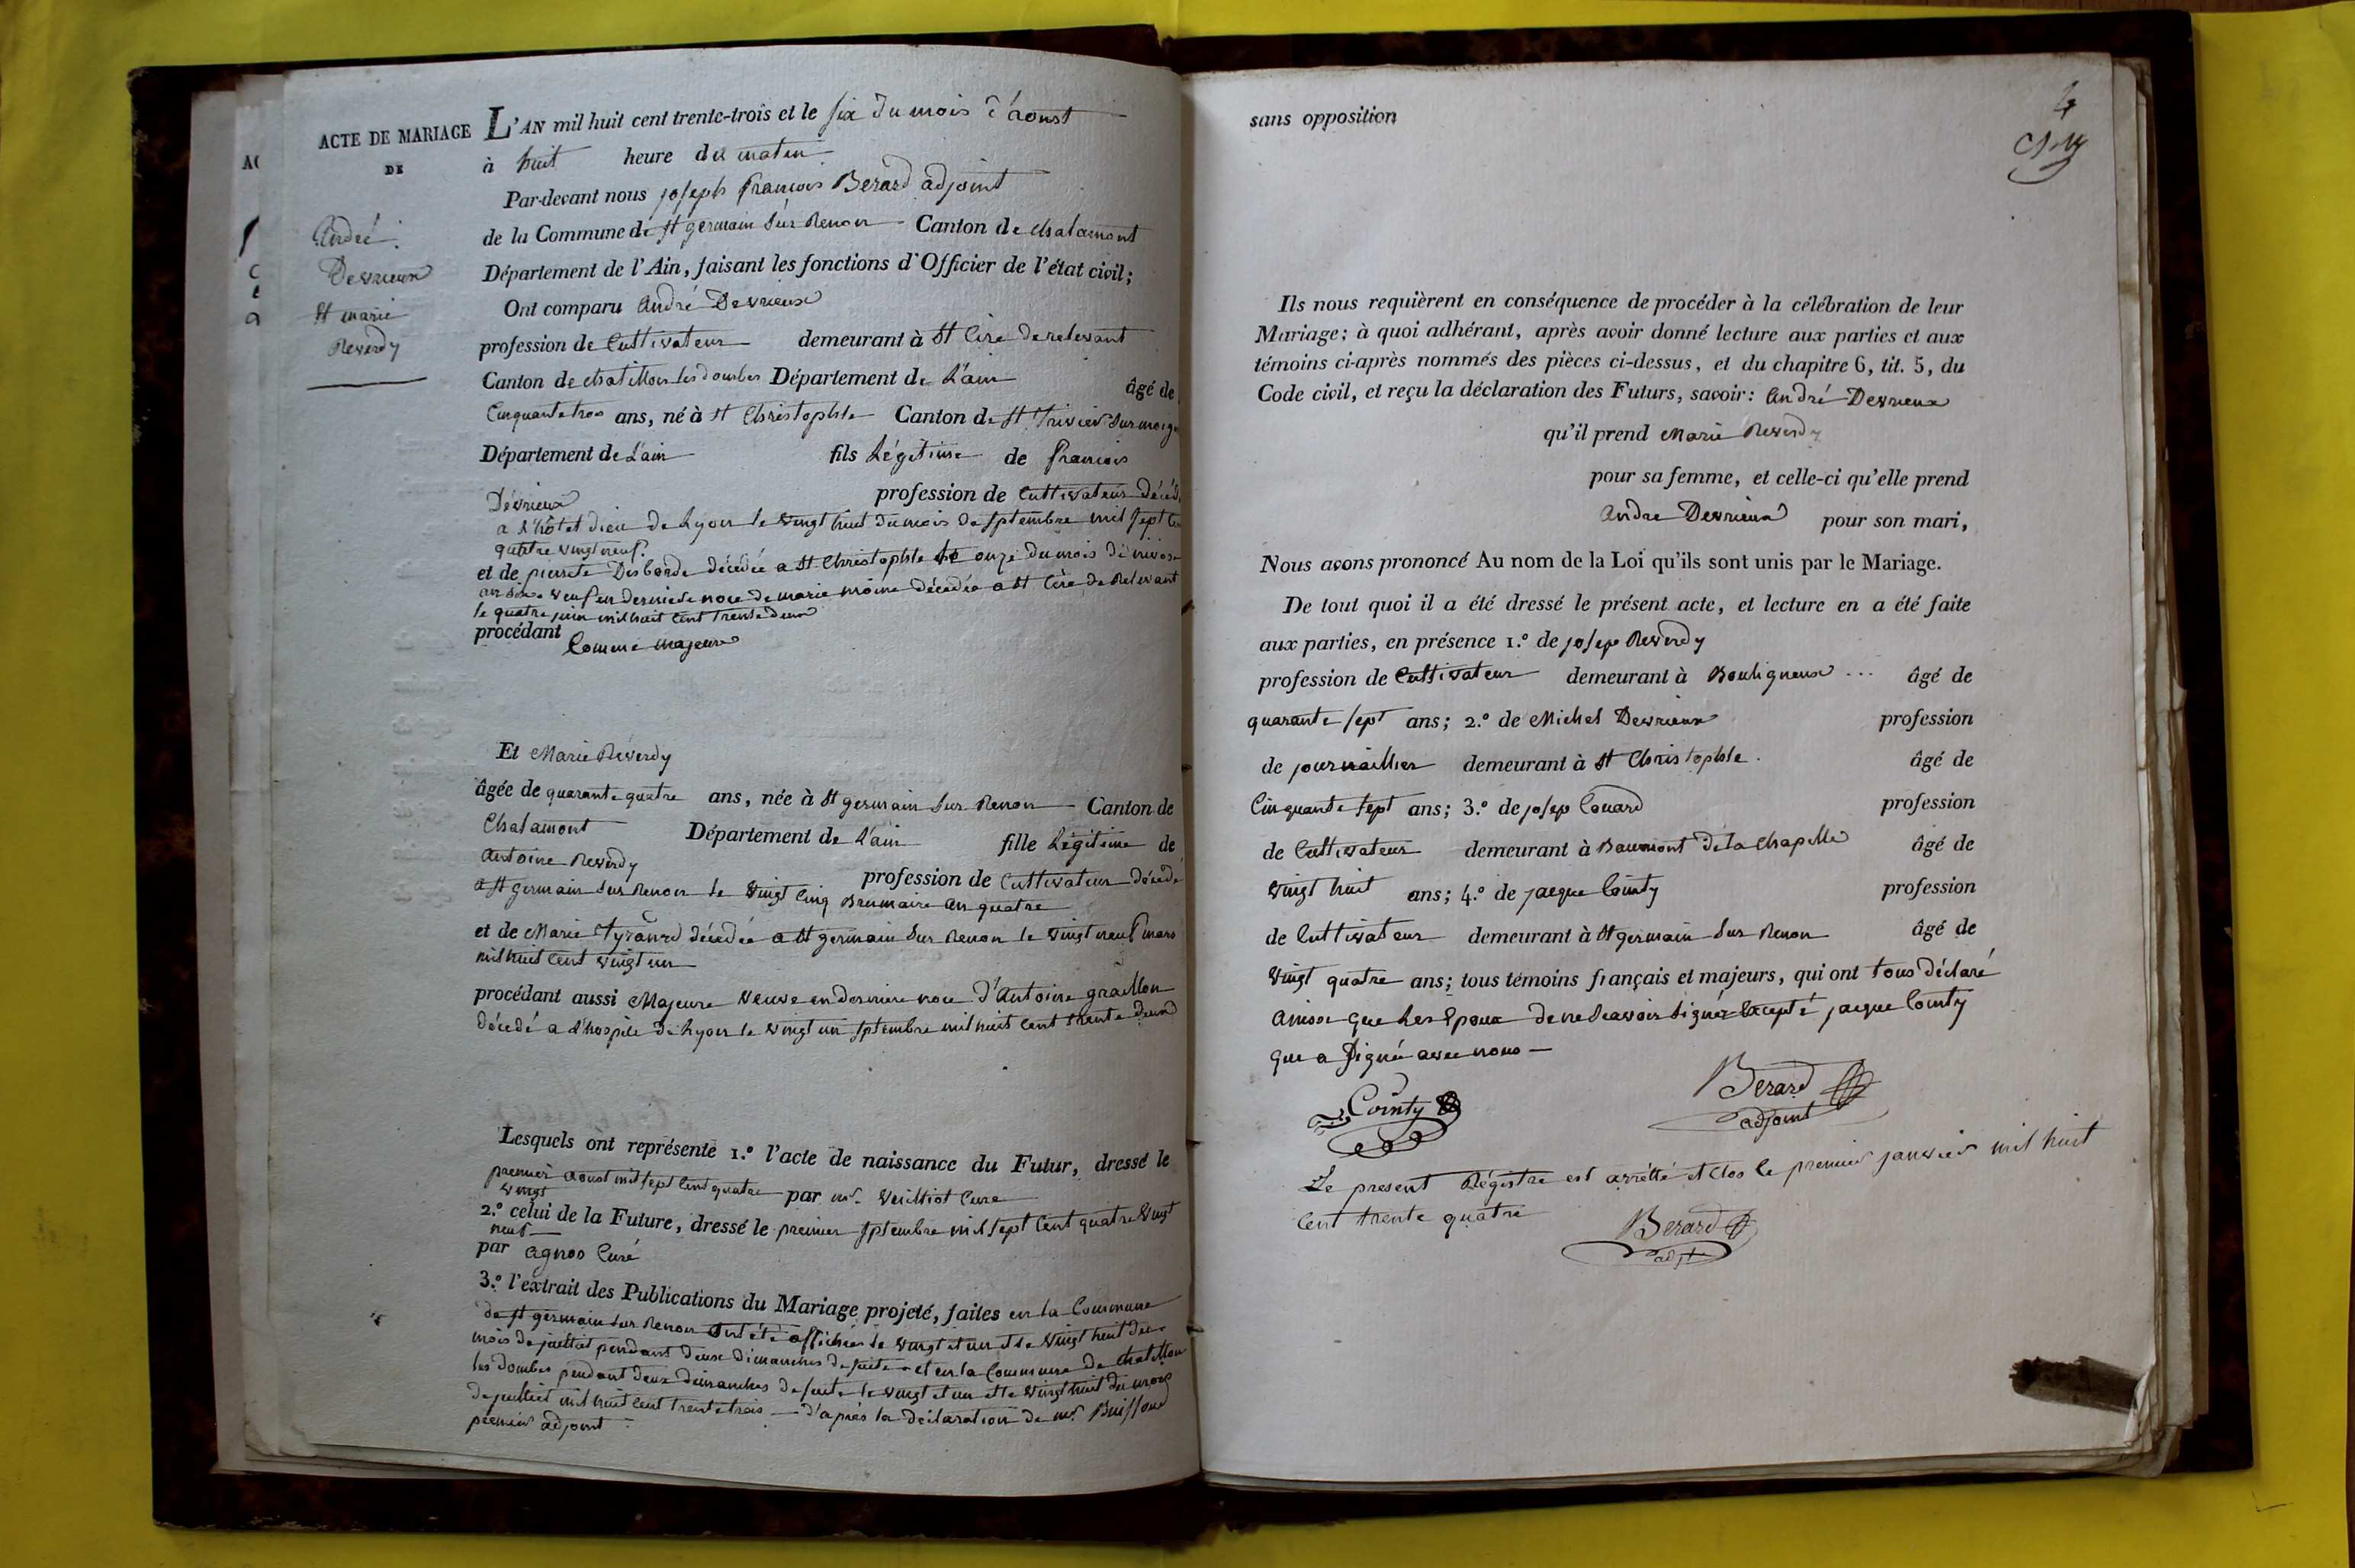 ACTE DE MARIAGE
DE
André
Devrieux
Et marie
Reverdy
L'AN mil huit cent trente-trois et le six du mois d'aoust
à huit heure du matin
Par-devant nous joseph françois Berard adjoint
de la Commune de st germain sur Renon Canton de chalamont
Département de l'Ain, faisant les fonctions d'Officier de l'état civil;
Ont comparu andré Devrieux
profession de Cultivateur demeurant à St Cire de relevant
Canton de chatillon les dombes Département de L'ain âgé de
Cinquante trois ans, né à st Christophle Canton de st trivier sur moign
Département de L'ain fils Légitime de françois
Devrieux profession de Cultivateur décéd
a L'hôtel dieu de Lyon le vingt huit du mois de septembre mil sept cen
quatre vingt neuf.
et de pierrete Desborde décédée a St Christophle le onze du mois de nivose
veuf en derniere noce de marie moine décédée a st Cire de Relevant
le quatre juin mil huit cent trente deux
procédant Comme majeure
Et Marie Reverdy
âgée de quarante quatre ans, née à St germain sur Renon Canton de
Chalamont Département de L'ain fille Légitime de
antoine Reverdy profession de Cultivateur décédé
a st germain sur Renon le vingt cinq Brumaire an quatre
et de Marie décédée a st germain sur Renon le vingt neuf mars
mil huit cent vingt un
procédant aussi Majeure veuve en derniere noce d'Antoine graillon
décédé a L'hospice de Lyon le vingt un septembre mil huit cent trente deux
Lesquels ont représenté 1.º l'acte de naissance du Futur, dressé le
premier aoust mil sept cent quatre par mr. Cure
vingt
2.º celui de la Future, dressé le premier septembre mil sept cent quatre vingt
neuf
par agnos Curé
3.º l'extrait des Publications du Mariage projeté, faites en la Commune
de st germain sur Renon ont été affichées le vingt et un et le vingt huit du
mois de juilliet pendant deux dimanches de suite et en la Commune de chatillon
les dombes pendant deux dimanches de suite le vingt et un et le vingt huit du mois
de juilliet mil huit cent trente trois d'apres la déclaration de mr. Buisson
premier adjoint
4
sans opposition
Ils nous requièrent en conséquence de procéder à la célébration de leur
Mariage; à quoi adhérant, après avoir donné lecture aux parties et aux
témoins ci-après nommés des pièces ci-dessus, et du chapitre 6, tit. 5, du
Code civil, et reçu la déclaration des Futurs, savoir: André Devrieux
qu'il prend Marie Reverdy
pour sa femme, et celle-ci qu'elle prend
andre Devrieux pour son mari,
Nous avons prononcé Au nom de la Loi qu'ils sont unis par le Mariage.
De tout quoi il a été dressé le présent acte, et lecture en a été faite
aux parties, en présence 1.º de josep Reverdy
profession de Cultivateur demeurant à Bouligneux ... âgé de
quarante sept ans; 2.º de Michel Devrieux profession
de journaillier demeurant à St Christophle. âgé de
Cinquante sept ans; 3.º de josep Couard profession
de Cultivateur demeurant à Baumont de la chapelle âgé de
vingt huit ans; 4.º de jacque Cointy profession
de Cultivateur demeurant à St germain sur Renon âgé de
vingt quatre ans; tous témoins français et majeurs, qui ont tous déclaré
que Les Epoux de ne scavoir signer Excepté jacque Cointy
que a signé avec nous
Cointy
Berard
adjoint
Le present Régistre est arrêtté et clos le premier janvier mil huit
cent trente quatre
Berard
adjt